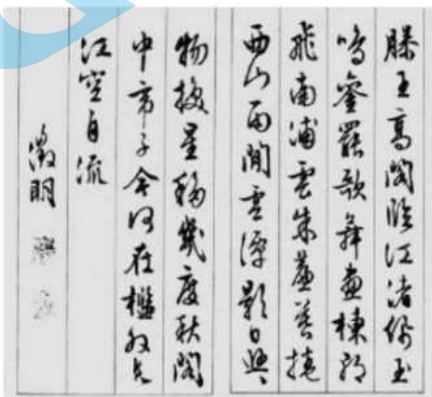 滕王高閣臨江渚佩玉
鳴鑾罷歌舞畫棟朝
飛南浦雲朱簾暮捲
西山雨閒雲潭影日悠々
物換星移幾度秋閣
中帝子今何在檻外長
江空自流
徵明